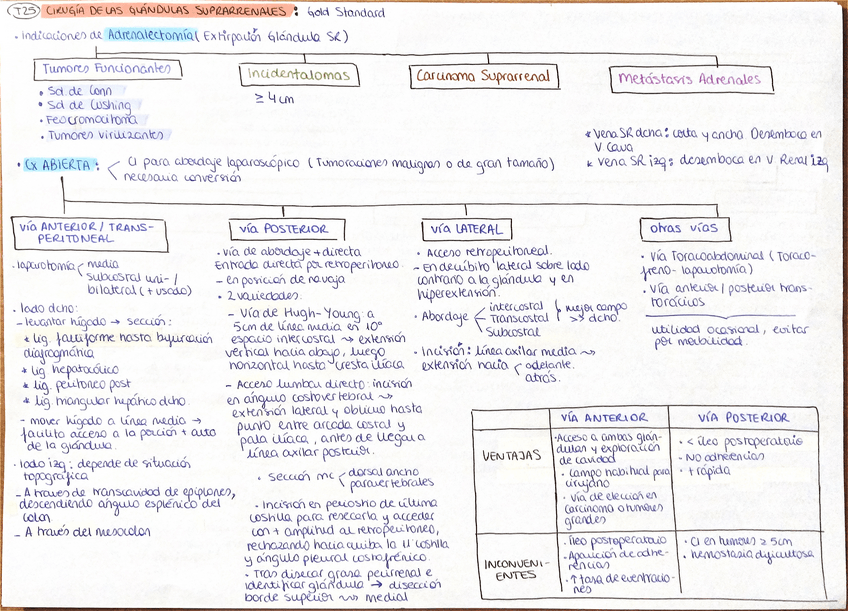 T25 CIRUGÍA DE LAS GLÁNDULAS SUPRARRENALES: Gold Standard
• Indicaciones de Adrenalectomía (Extirpación Glándula SR)
Tumores Funcionantes
• Sd de Conn
• Sd de Cushing
• Feocromocitoma
• Tumores virilizantes
Incidentalomas
≥ 4 cm
Carcinoma Suprarrenal
Metástasis Adrenales
* Vena SR dcha: corta y ancha. Desemboca en
V Cava
* Vena SR izq: desemboca en V Renal izq
• Cx ABIERTA:
CI para abordaje laparoscópico (Tumoraciones malignas o de gran tamaño)
necesaria conversión
VÍA ANTERIOR / TRANS-
PERITONEAL
• laparotomía
media
subcostal uni- /
bilateral (+ usado)
• lado dcho:
- levantar hígado → sección:
* lig. falciforme hasta bifurcación
diafragmática
* lig hepatocólico
* lig. peritoneo post
* lig. triangular hepático dcho.
- mover hígado a línea media →
facilita acceso a la porción + alta
de la glándula.
• lado izq: depende de situación
topográfica
- A través de transcavidad de epiplones,
descendiendo ángulo esplénico del
colon
- A través del mesocolon
VÍA POSTERIOR
• Vía de abordaje + directa
Entrada directa por retroperitoneo.
- en posición de navaja
• 2 variedades:
- Vía de Hugh-Young: a
5cm de línea media en 10º
espacio intercostal → extensión
vertical hacia abajo, luego
horizontal hasta cresta ilíaca
- Acceso lumbar directo: incisión
en ángulo costovertebral →
extensión lateral y oblicua hasta
punto entre arcada costal y
pala ilíaca, antes de llegar a
línea axilar posterior.
• Sección mc
dorsal ancho
paravertebrales
• Incisión en periostio de última
costilla para resecarla y acceder
con + amplitud al retroperitoneo,
rechazando hacia arriba la 11 costilla
y ángulo pleural costofrénico.
• Tras disecar grasa perirrenal e
identificar glándula → disección
borde superior → medial
VÍA LATERAL
• Acceso retroperitoneal.
- En decúbito lateral sobre lado
contrario a la glándula y en
hiperextensión.
• Abordaje
intercostal
Transcostal
Subcostal
mejor campo
>> dcho.
• Incisión: línea axilar media →
extensión hacia
adelante.
atrás.
otras vías
• Vía Toracoabdominal (Toraco-
freno-laparotomía)
• Vía anterior/posterior trans-
torácicos
utilidad ocasional, evitar
por morbilidad.
VÍA ANTERIOR
VÍA POSTERIOR
VENTAJAS
• Acceso a ambas glán-
dulas y exploración
de cavidad
• Campo habitual para
cirujano
• Vía de elección en
carcinoma o tumores
grandes
• < íleo postoperatorio
• No adherencias
• + rápida
INCONVENI-
ENTES
• Íleo postoperatorio
• Aparición de adhe-
rencias
• ↑ tasa de eventracio-
nes
• CI en tumores ≥ 5cm
• hemostasia dificultosa